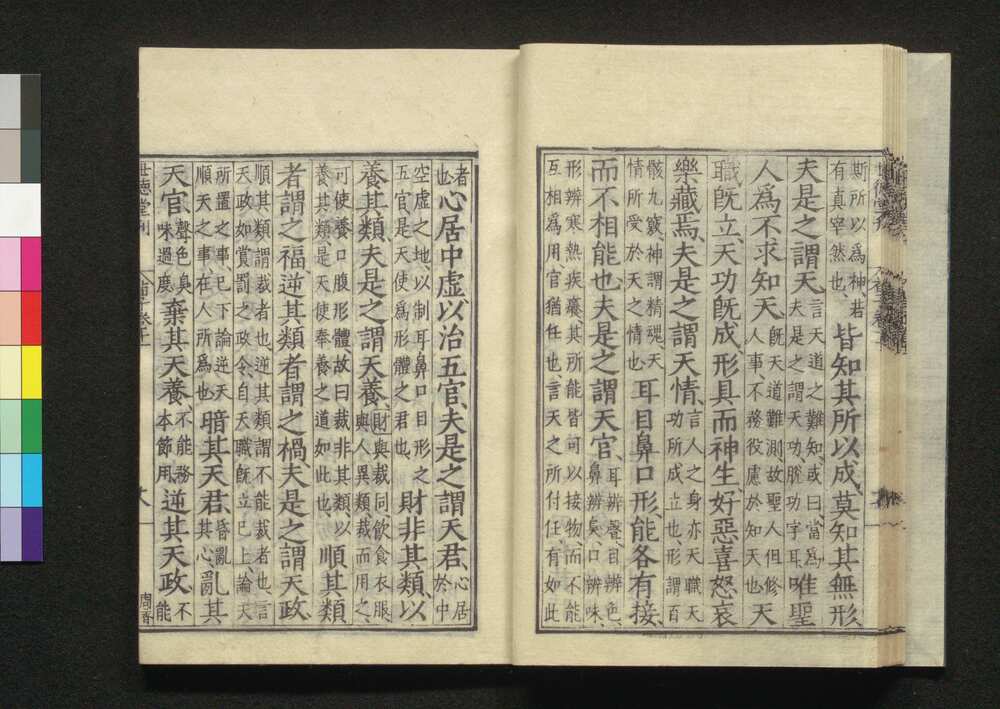 斯所以爲神若
有真宰然也、
皆知其所以成、莫知其無形、
夫是之謂天、
言天道之難知、或曰、當爲
夫是之謂天功、脫功字耳、
唯聖
人爲不求知天、
旣天道難測、故聖人但修
人事、不務役慮於知天也、
天
職旣立、天功旣成、形具而神生、好惡喜怒哀
樂藏焉、夫是之謂天情、
言人之身亦天職天
功所成立也、形謂百
骸九竅、神謂精魂、天
情所受於天之情也、
耳目鼻口形能各有接、
而不相能也、夫是之謂天官、
耳辨聲、目辨色、
鼻辨臭、口辨味、
形辨寒熱疾癢、其所能皆可以接物、而不能
互相爲用、官猶任也、言天之所付任有如此
者
也、
心居中虛、以治五官、夫是之謂天君、
心居
於中
空虛之地、以制耳鼻口目形之
五官、是天使爲形體之君也、
財非其類、以
養其類、夫是之謂天養、
財與裁同、飲食衣服、
與人異類、裁而用之、
可使養口腹形體、故曰裁非其類以
養其類、是天使奉養之道如此也、
順其類
者謂之福、逆其類者謂之禍、夫是之謂天政、
順其類謂裁者也、逆其類謂不能裁者也、言
天政如賞罰之政令、自天職旣立已上、論天
所置之事、已下論逆天
順天之事、在人所爲也、
暗其天君、
昏亂
其心
亂其
天官、
聲色臭
味過度
棄其天養、
不能務
本節用、
逆其天政、
不
能
世德堂刊